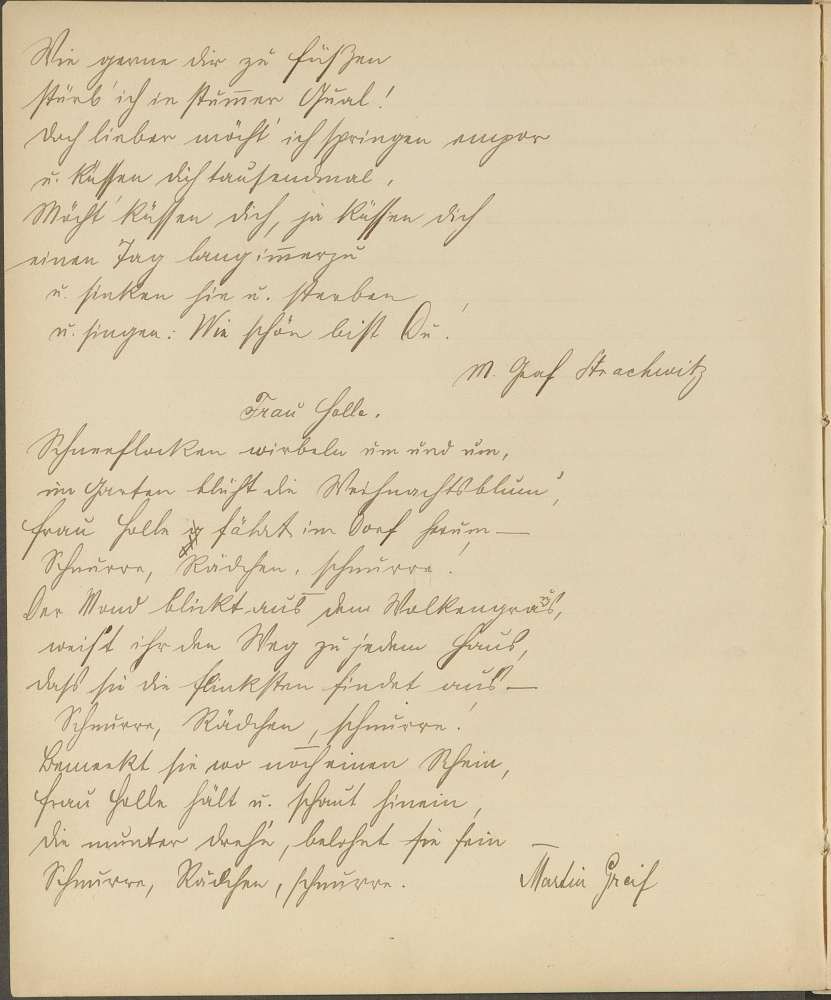 Wie gerne dir zu Füßen
stürb' ich in stum̅er Qual!
doch lieber möcht' ich springen empor
u. küssen dich tausendmal,
Möcht' küssen dich, ja küssen dich
einen Tag lang im̅erzu
u. sinken hin u. sterben
u. singen: Wie schön bist Du!
M. Graf Strachwitz
Frau Holle.
Schneeflocken wirbeln um und um,
im Garten blüht die Weihnachtsblum',
Frau Holle fährt im Dorf herum —
Schnurre, Rädchen, schnurre!
Der Mond blickt aus dem Wolkengraus,
weist ihr den Weg zu jedem Haus,
dass sie die flinksten findet aus —
Schnurre, Rädchen, schnurre!
Bemerkt sie wo noch einen Schein,
Frau Holle hält u. schaut hinein,
die munter dreh'n, belohnt sie fein —
Schnurre, Rädchen, schnurre.
Martin Greif